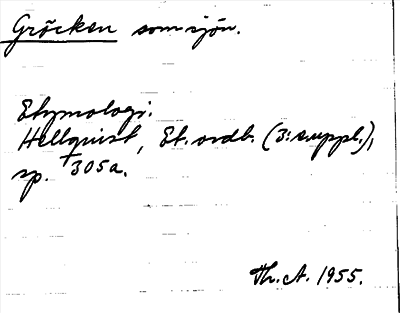 Gröcken som sjön.
Etymologi:
Hellquist, Et. ordb. (3: suppl.),
sp. 305a.
Th. A. 1955.